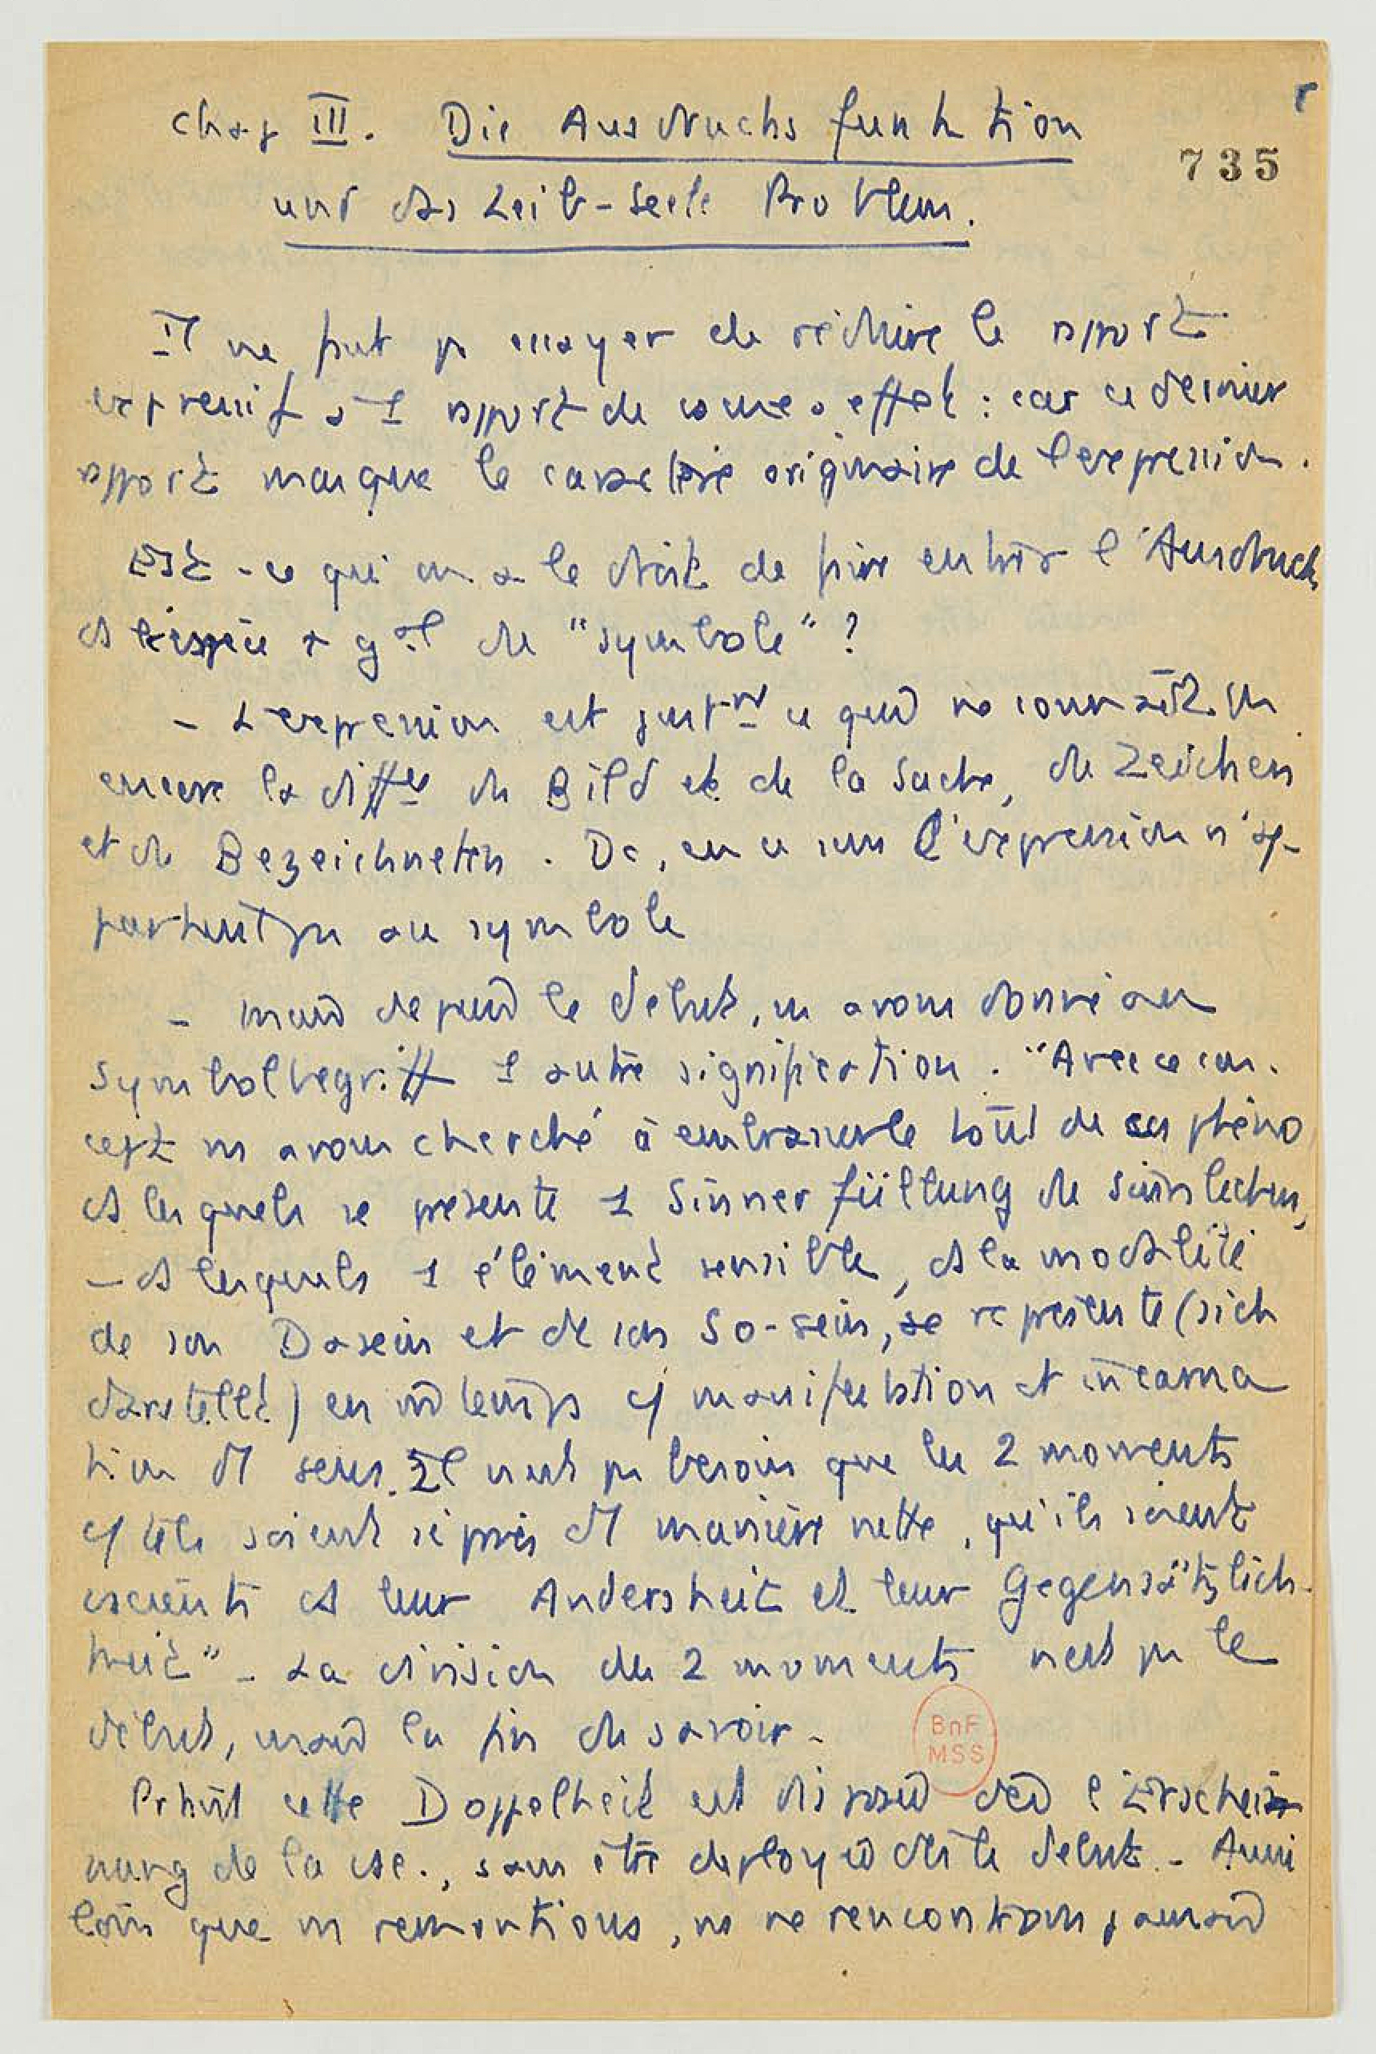 Chap III. Die Ausdrucksfunktion
735
und das Leib-Seele Problem.
Il ne faut pas essayer de réduire le rapport
expressif à 1 rapport de cause à effet : car ce dernier
rapport manque le caractère originaire de l'expression.
Est-ce qu'on a le droit de faire entrer l'Ausdruck
ds l'espèce + gale du "symbole" ?
- L'expression est justmt ce qui ne connaît pas
encore la différe du Bild et de la Sache, du Zeichen
et du Bezeichneten. Dc, en ce sens l'expression n'ap-
partient pas au symbole
- mais depuis le début, ns avons donné au
Symbolbegriff 1 autre signification. "Avec ce con-
cept ns avons cherché à embrasser le tout de ces phéno
ds lesquels se présente 1 Sinnerfüllung du Sinnlichen,
- ds lesquels 1 élément sensible, ds la modalité
de son Dasein et de son So-sein, se représente (sich
darstellt) en m̂ temps c/ manifestation et incarna
tion d'1 sens. Il n'est pas besoin que les 2 moments
c/ tels soient séparés d'1 manière nette, qu'ils soient
ds leur Andersheit et leur Gegensätzlich-
keit" - La division des 2 moments n'est pas le
début, mais la fin du savoir -
cette Doppelheit est ds l'Erschei
nung de la csc., sans être déployée dès le début. - Aussi
loin que ns remontions, ns ne rencontrons jamais
BnF
MSS